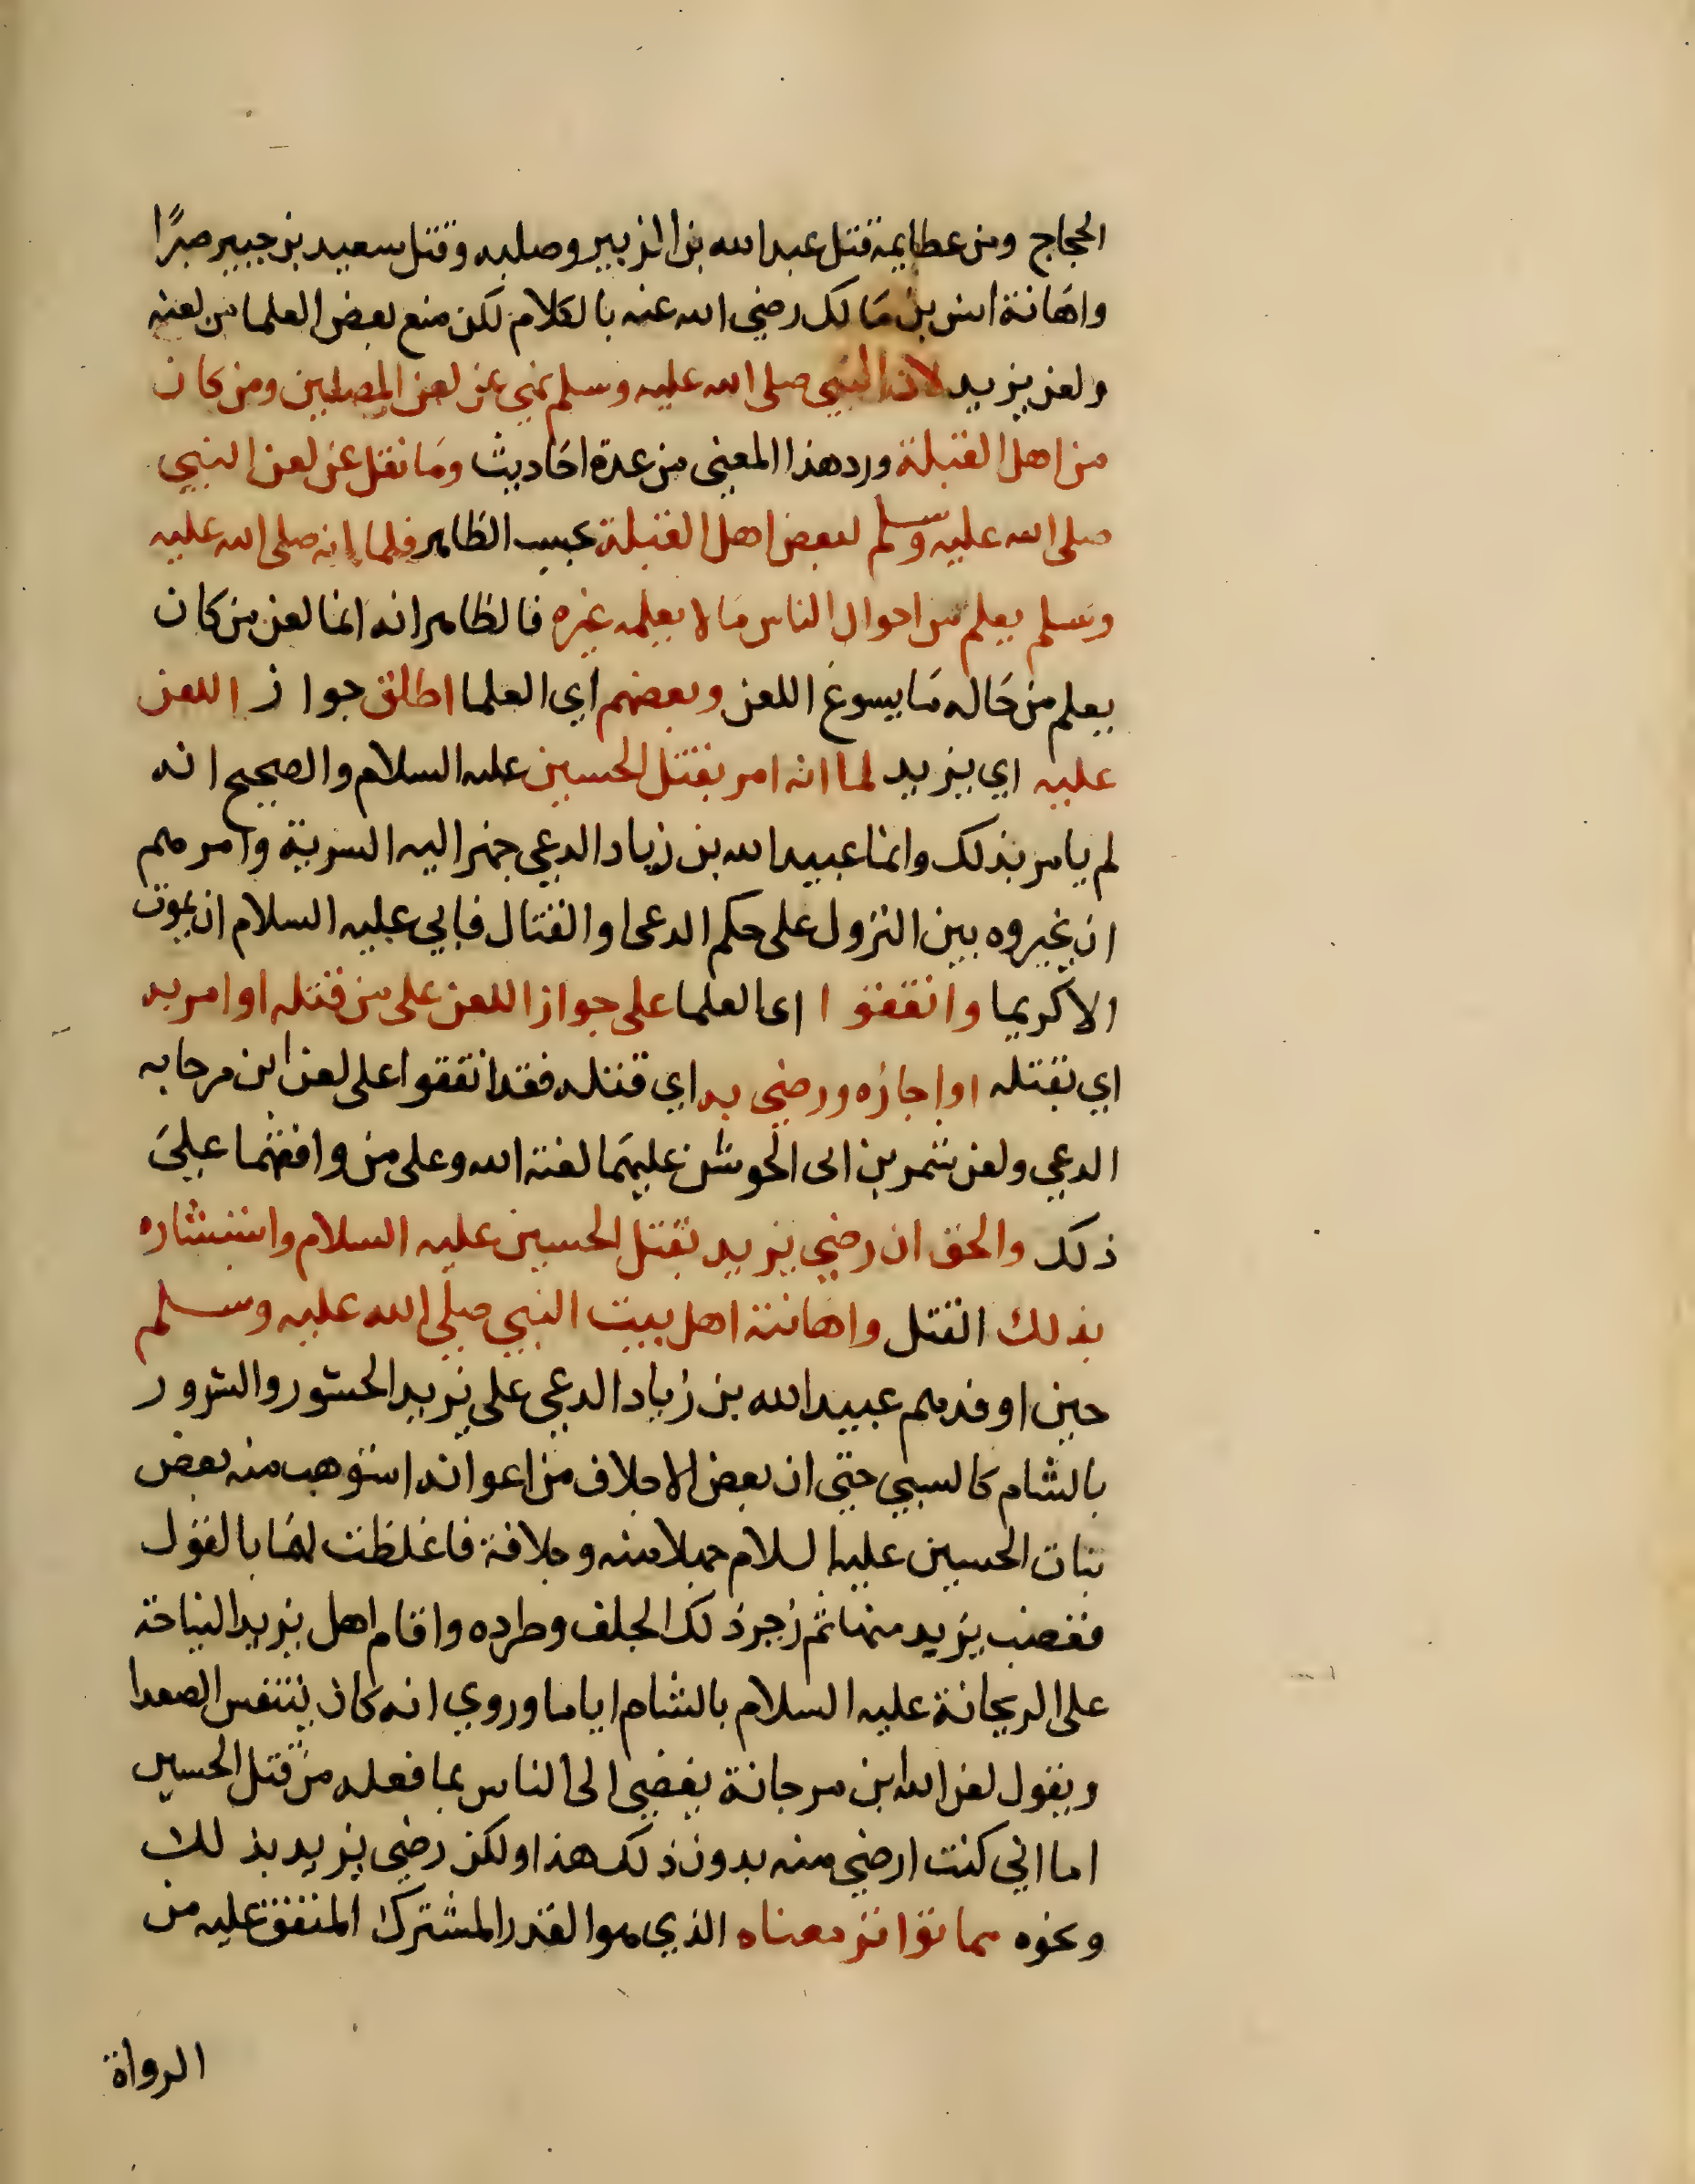 الحجاج ومن عظايمه قتل عبد الله بن الزبير وصلبه وقتل سعيد بن جبير صبرًا
واهانة انس بن مالك رضي الله عنه بالكلام لكن منع بعض العلما من لعنه
ولعن يزيد لان النبي صلى الله عليه وسلم نهي عن لعن المصلين ومن كان
من اهل القبلة ورد هذا المعني من عدة احاديث وما نقل عن لعن النبي
صلى الله عليه وسلم لبعض اهل القبلة بحسب الظاهر فلما انه صلى الله عليه
وسلم يعلم من احوال الناس ما لا يعلمه غيره فالظاهر انه انما لعن من كان
يعلم من حاله ما يسوغ اللعن وبعضهم اي العلما اطلق جواز اللعن
عليه اي يزيد لما انه امر بقتل الحسين عليه السلام والصحيح انه
لم يامر بذلك وانما عبيد الله بن زياد الدعي جهز اليه السرية وامرهم
ان يخيروه بين النزول على حكم الدعي او القتال فابي عليه السلام ان يموت
الا كريما واتفقوا اي العلما على جواز اللعن على من قتله او امر به
اي بقتله او اجازه ورضي به اي قتله فقد اتفقوا على لعن ابن مرجانه
الدعي ولعن شمر بن ابى الجوشن عليهما لعنة الله وعلى من وافقهما على
ذلك والحق ان رضي يزيد بقتل الحسين عليه السلام واستبشاره
بذلك القتل واهانته اهل بيت النبي صلى الله عليه وسلم
حين اوفدهم عبيد الله بن زياد الدعي على يزيد الخسور والشرور
بالشام كالسبي حتى ان بعض الاجلاف من اعوانه استوهب منه بعض
بنات الحسين عليه السلام جهلا منه وجلافة فاغلظت لها بالقول
فغضب يزيد منها ثم زجر ذلك الجلف وطرده واقام اهل يزيد النياحة
على الريحانة عليه السلام بالشام اياما وروي انه كان يتنفس الصعدا
ويقول لعن الله ابن مرجانة بغضني الى الناس بما فعله من قتل الحسين
اما اني كنت ارضي منه بدون ذلك هذا ولكن رضي يزيد بذلك
ونحوه مما تواتر معناه الذي هو القدر المشترك المتفق عليه من
الرواة